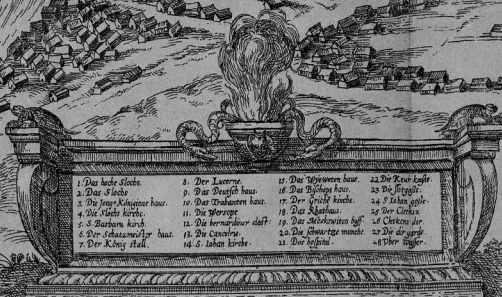 1. Das hoche Slochs.
2. Das Slochs
3. Die Jong Könginne haus.
4. Die Slochs kirche.
5. S. Barbara kirch.
6. Der Schatzmeister haus.
7. Der König stall.
8. Der Lucerne.
9. Das Deutsch haus.
10. Das Trabanten haus.
11. Die Wersope
12. Die bernardiner closter:
13. Die Cancelrie.
14. S. Iohan kirche.
15. Das Wijwoten haus.
16. Das Bischops haus.
17. Der Griche kirche.
18. Das Rhathaus.
19. Das Moskowiten hoff.
20. Die schwartze munche.
21. Das hospital.
22 Die
23 Die
24 S Iohan gasse.
25 Der Clercken
26 Clerckens
27 Die
28 Vber